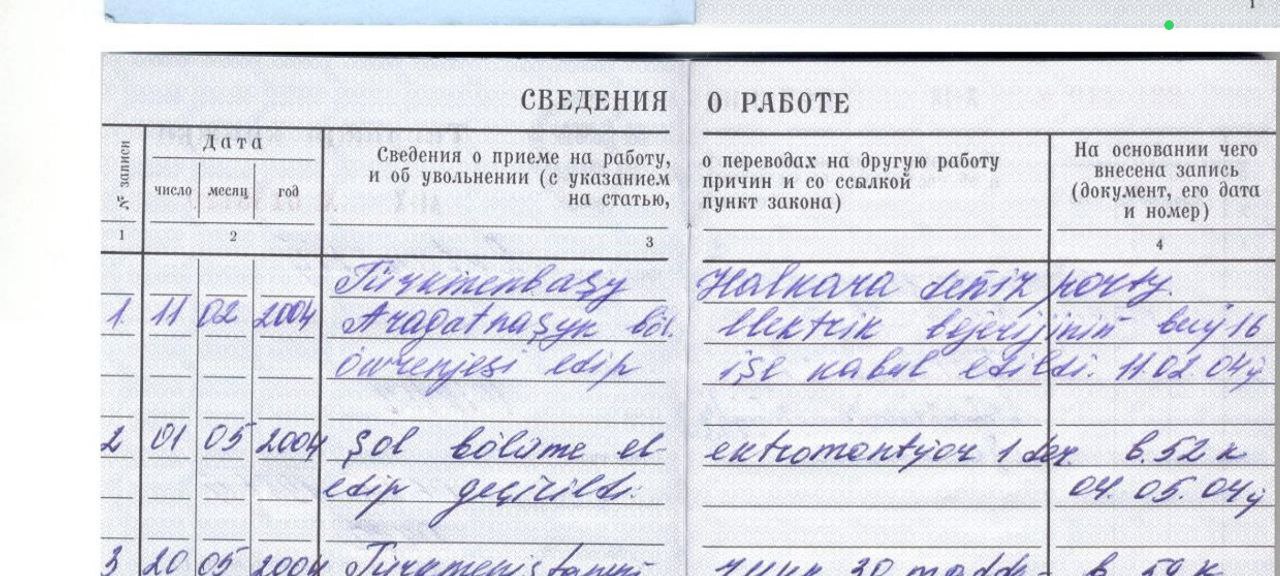 СВЕДЕНИЯ О РАБОТЕ
№ записи
Дата
число месяц год
Сведения о приеме на работу, о переводах на другую работу
и об увольнении (с указанием причин и со ссылкой
на статью, пункт закона)
На основании чего
внесена запись
(документ, его дата
и номер)
1 2 3 4
Türkmenbaşy Halkara deňiz porty.
1 11 02 2004 Aragatnaşyk böl. elektrik bejerijiniň buý 16
öwrenjesi edip işe kabul edildi. 11.02.04ý
2 01 05 2004 şol bölüme el- ektromontýor 1 der. b.52 k
edip geçirildi. 04.05.04ý
3 20 05 2004 Türkmenistanyň 30 madd